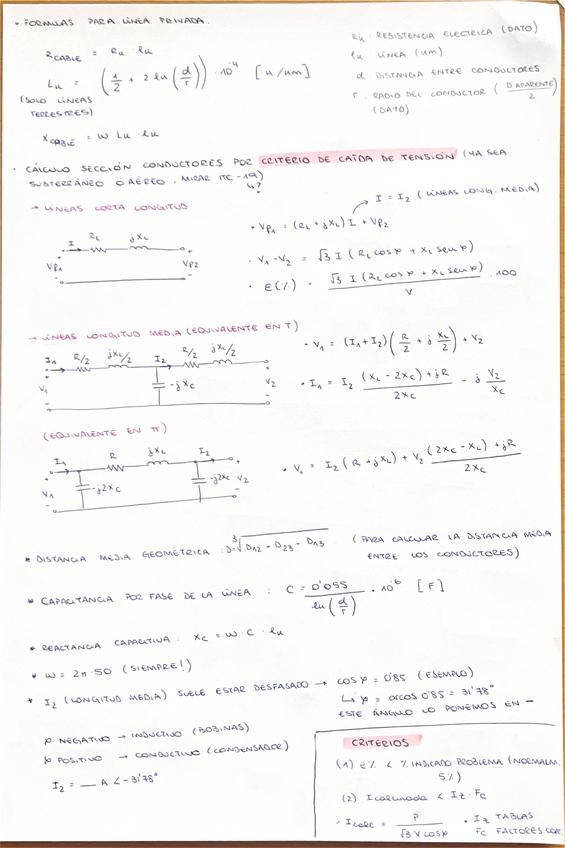 • FORMULAS PARA LÍNEA PRIVADA.
RCABLE = Ru · lu
Lu = (1/2 + 2 ln (d/r)) · 10^-4 [H/km]
(SOLO LÍNEAS TERRESTRES)
XCABLE = W Lu · lu
Ru · RESISTENCIA ELECTRICA (DATO)
lu · LÍNEA (km)
d DISTANCIA ENTRE CONDUCTORES
r · RADIO DEL CONDUCTOR (D APARENTE/2)
(DATO)
· CÁLCULO SECCIÓN CONDUCTORES POR CRITERIO DE CAÍDA DE TENSIÓN (YA SEA
SUBTERRÁNEO O AÉREO, MIRAR ITC-19)
4?
→ LÍNEAS CORTA LONGITUD
I = I2 (LÍNEAS LONG. MEDIA)
I RL jXL
Vp1 Vp2
• Vp1 = (RL + jXL) I + Vp2
• V1 - V2 = √3 I (RL cos φ + XL sen φ)
• E(%) = √3 I (RL cos φ + XL sen φ) / V · 100
→ LÍNEAS LONGITUD MEDIA (EQUIVALENTE EN T)
I1 R/2 jXL/2 I2 R/2 jXL/2
V1 -jXC V2
• V1 = (I1 + I2)(R/2 + j XL/2) + V2
• I1 = I2 (XL - 2XC) + jR / 2XC - j V2/XC
(EQUIVALENTE EN π)
I1 R jXL I2
V1 -j2XC -j2XC V2
• V1 = I2 (R + jXL) + V2 (2XC - XL) + jR / 2XC
* DISTANCIA MEDIA GEOMÉTRICA : D = ∛D12 - D23 - D13 . (PARA CALCULAR LA DISTANCIA MEDIA
ENTRE LOS CONDUCTORES)
* CAPACITANCIA POR FASE DE LA LÍNEA : C = 0'055 / ln (d/r) · 10^-6 [F]
* REACTANCIA CAPACITIVA : XC = W · C · lu
* W = 2π · 50 (SIEMPRE!)
* I2 (LONGITUD MEDIA) SUELE ESTAR DESFASADO → COS φ = 0'85 (EJEMPLO)
↳ φ = arcos 0'85 = 31'78°
ESTE ÁNGULO LO PONEMOS EN -
φ NEGATIVO → INDUCTIVO (BOBINAS)
φ POSITIVO → CONDUCTIVO (CONDENSADOR)
I2 = __ A ∠ -31'78°
CRITERIOS
(1) E% < % INDICADO PROBLEMA (NORMALM. 5%)
(2) I calculada < IZ · FC
→ Icalc = P / √3 V cos φ
• IZ TABLAS
FC FACTORES COR.